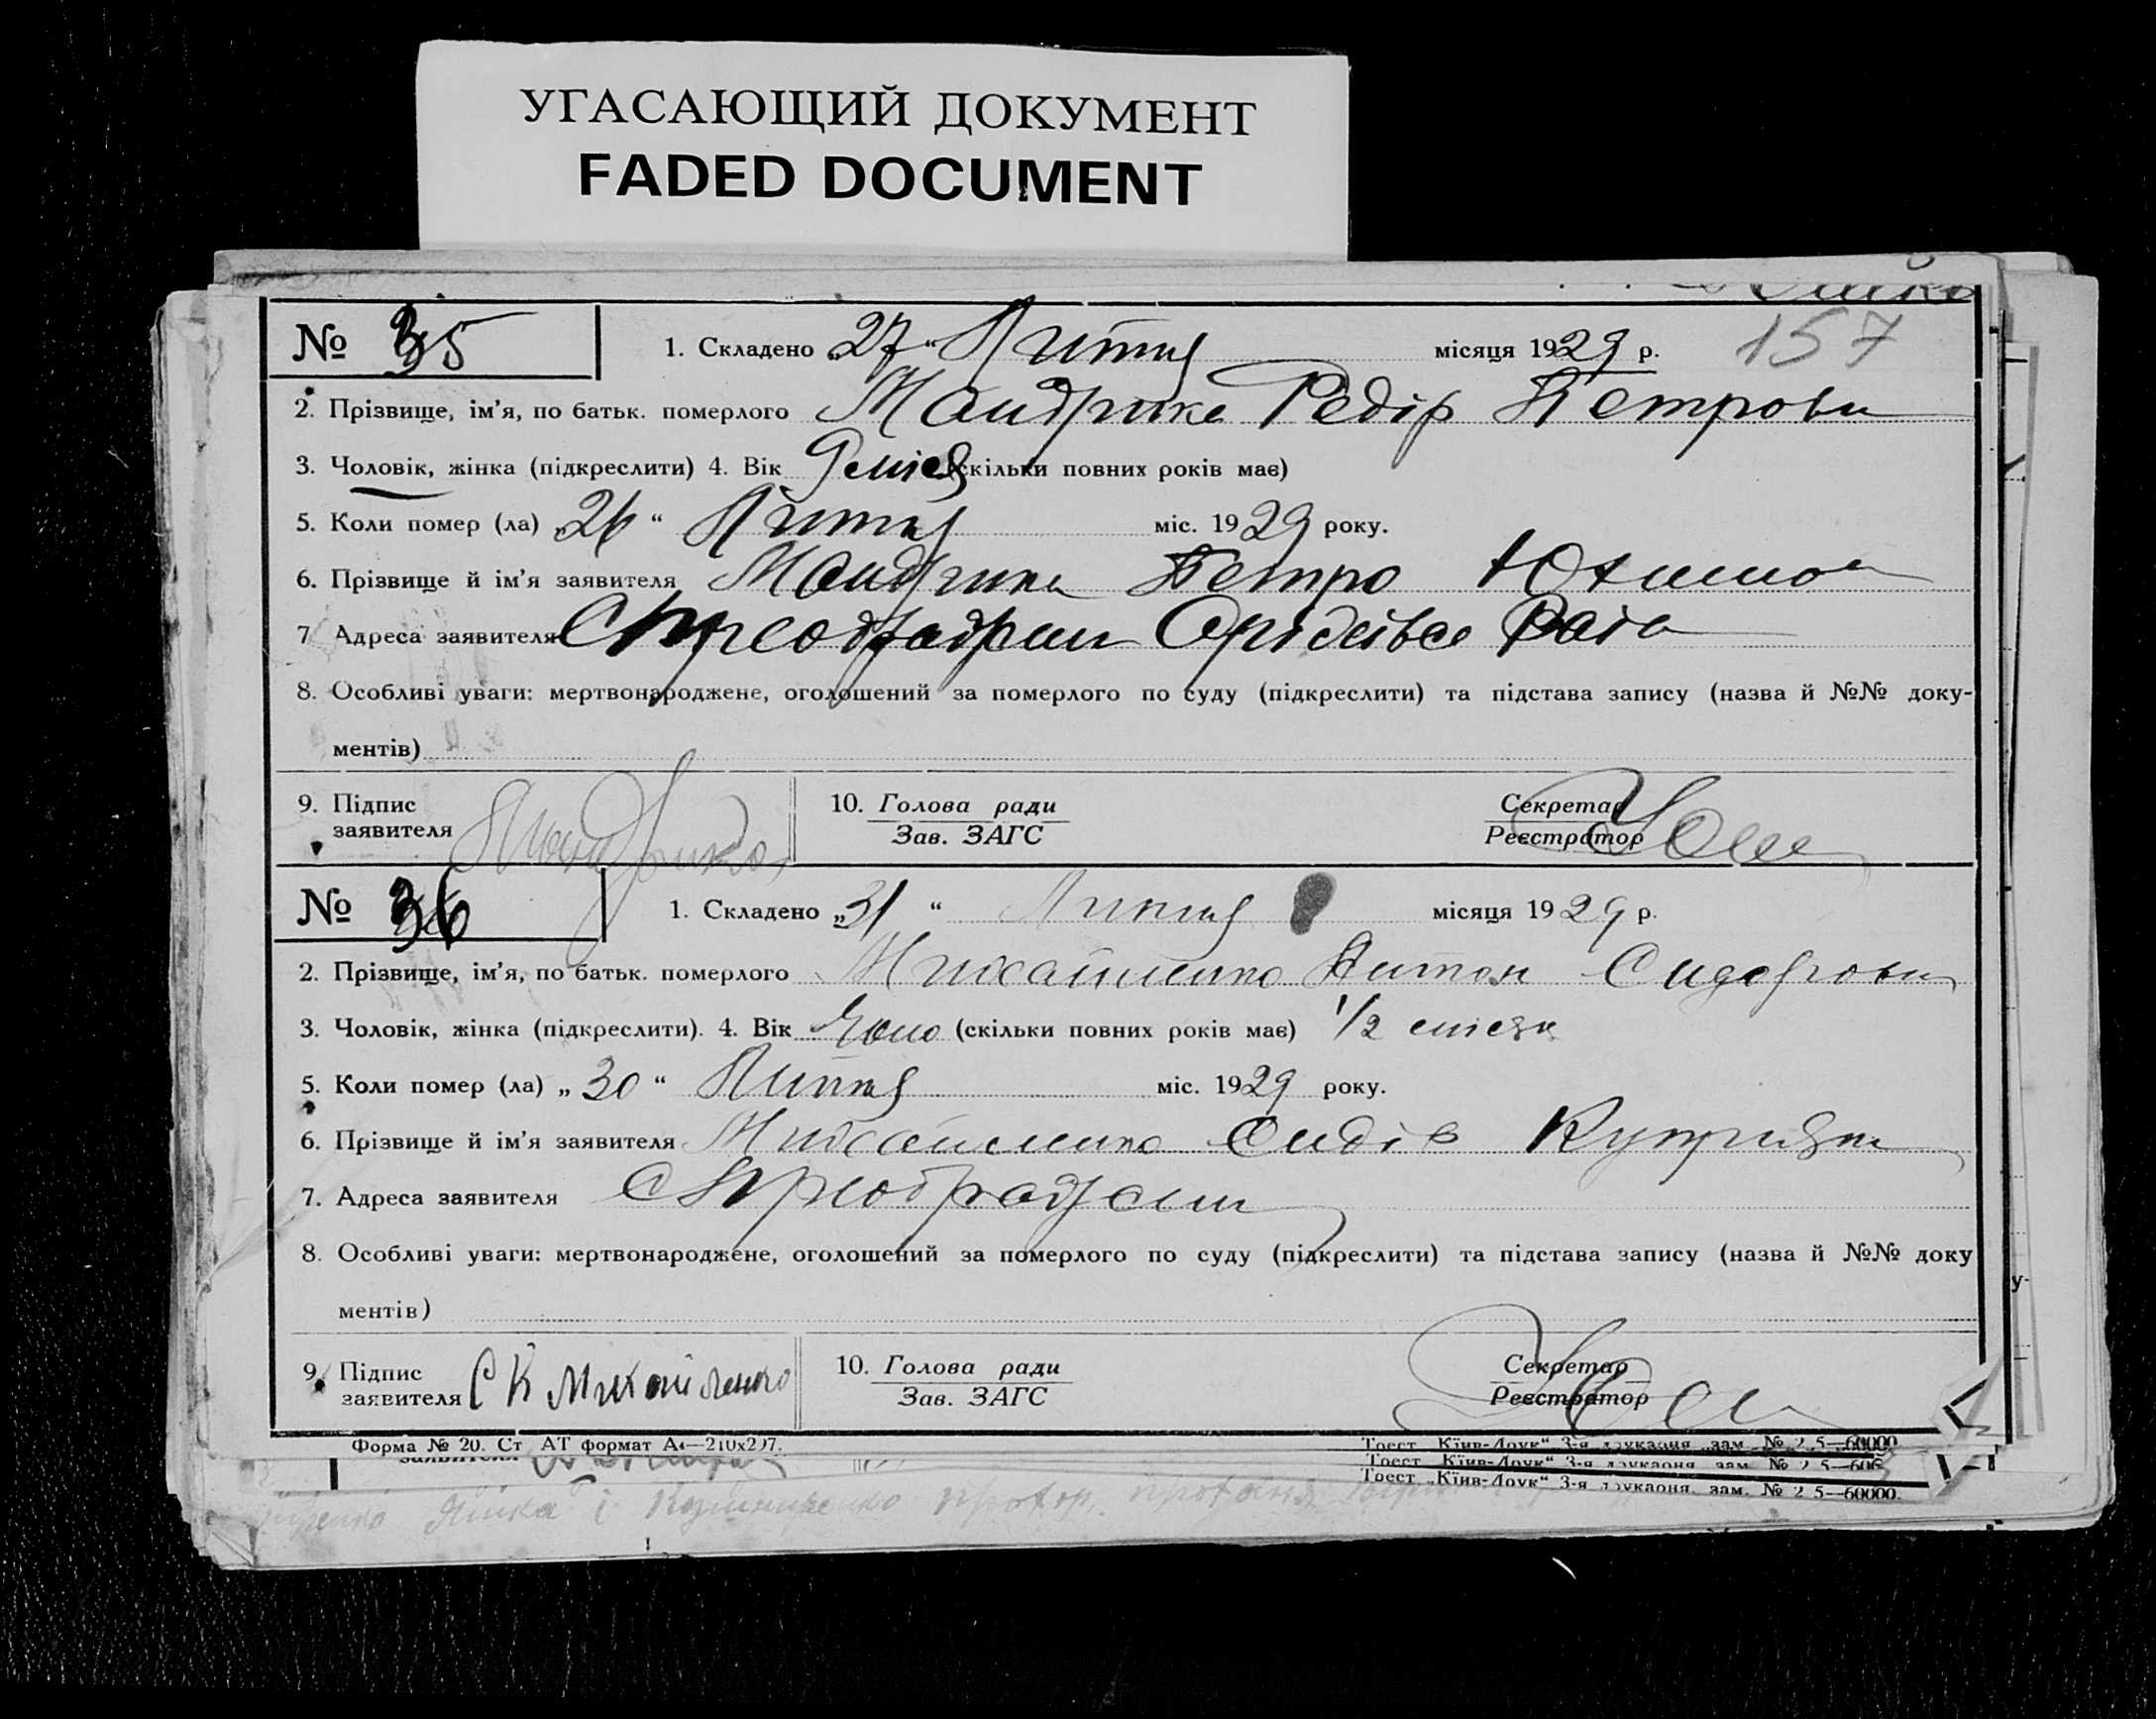 УГАСАЮЩИЙ ДОКУМЕНТ
FADED DOCUMENT
157
№ 35 1. Складено „27“ Липня місяця 1929 р.
2. Прізвище, ім'я, по батьк. померлого Мандрика Федір Петрови
3. Чоловік, жінка (підкреслити) 4. Вік (скільки повних років має)
5. Коли помер (ла) „26“ Липня міс. 1929 року.
6. Прізвище й ім'я заявителя Мандрика Петро Юхимов
7. Адреса заявителя
8. Особливі уваги: мертвонароджене, оголошений за померлого по суду (підкреслити) та підстава запису (назва й №№ доку-
ментів)
9. Підпис заявителя Мандрика 10. Голова ради Секретар
Зав. ЗАГС Реєстратор
№ 36 1. Складено „31“ Липня місяця 1929 р.
2. Прізвище, ім'я, по батьк. померлого Михайленко Антон Сидорови
3. Чоловік, жінка (підкреслити). 4. Вік (скільки повних років має) 1/2 місяця
5. Коли помер (ла) „30“ Липня міс. 1929 року.
6. Прізвище й ім'я заявителя Михайленко Сидір
7. Адреса заявителя
8. Особливі уваги: мертвонароджене, оголошений за померлого по суду (підкреслити) та підстава запису (назва й №№ доку
ментів)
9. Підпис заявителя С К Михайленко 10. Голова ради Секретар
Зав. ЗАГС Реєстратор
Форма № 20. Ст АТ формат А4—210х297. Трест „Київ-Друк“ 3-я друкарня зам. № 2 5—60000
Трест „Київ-Друк“ 3-я друкарня зам. № 2 5—606
Трест „Київ-Друк“ 3-я друкарня. зам. № 2 5—60000.